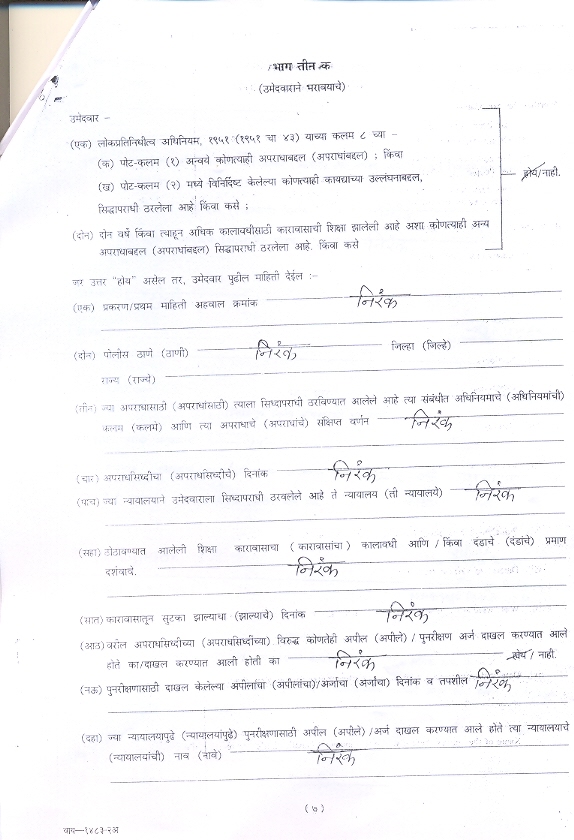 भाग तीन क
(उमेदवाराने भरावयाचे)
उमेदवार –
(एक) लोकप्रतिनिधीत्व अधिनियम, १९५१ (१९५१ चा ४३) याच्या कलम ८ च्या –
(क) पोट-कलम (१) अन्वये कोणत्याही अपराधाबद्दल (अपराधांबद्दल) ; किंवा
(ख) पोट-कलम (२) मध्ये विनिर्दिष्ट केलेल्या कोणत्याही कायद्याच्या उल्लंघनाबद्दल,
होय/नाही.
सिद्धापराधी ठरलेला आहे किंवा कसे ;
(दोन) दोन वर्षे किंवा त्याहून अधिक कालावधीसाठी कारावासाची शिक्षा झालेली आहे अशा कोणत्याही अन्य
अपराधाबद्दल (अपराधांबद्दल) सिद्धापराधी ठरलेला आहे. किंवा कसे
जर उत्तर "होय" असेल तर, उमेदवार पुढील माहिती देईल :–
(एक) प्रकरण/प्रथम माहिती अहवाल क्रमांक निरंक
(दोन) पोलीस ठाणे (ठाणी) निरंक जिल्हा (जिल्हे)
राज्य (राज्ये)
(तीन) ज्या अपराधासाठी (अपराधांसाठी) त्याला सिध्दापराधी ठरविण्यात आलेले आहे त्या संबंधीत अधिनियमाचे (अधिनियमांची)
कलम (कलमे) आणि त्या अपराधाचे (अपराधांचे) संक्षिप्त वर्णन निरंक
(चार) अपराधसिध्दीचा (अपराधसिध्दीचे) दिनांक निरंक
(पाच) ज्या न्यायालयाने उमेदवाराला सिध्दापराधी ठरवलेले आहे ते न्यायालय (ती न्यायालये) निरंक
(सहा) ठोठावण्यात आलेली शिक्षा कारावासाचा (कारावासांचा) कालावधी आणि / किंवा दंडाचे (दंडांचे) प्रमाण
दर्शवावे. निरंक
(सात) कारावासातून सुटका झाल्याचा (झाल्याचे) दिनांक निरंक
(आठ) वरील अपराधसिध्दीच्या (अपराधसिध्दीच्या) विरुद्ध कोणतेही अपील (अपीले) / पुनरीक्षण अर्ज दाखल करण्यात आले
होते का/दाखल करण्यात आली होती का निरंक होय / नाही.
(नऊ) पुनरीक्षणासाठी दाखल केलेल्या अपीलाचा (अपीलांचा)/अर्जाचा (अर्जांचा) दिनांक व तपशील निरंक
(दहा) ज्या न्यायालयापुढे (न्यायालयांपुढे) पुनरीक्षणासाठी अपील (अपीले) /अर्ज दाखल करण्यात आले होते त्या न्यायालयाचे
(न्यायालयांची) नाव (नांवे) निरंक
(७)
वाय—१४८३-२अ